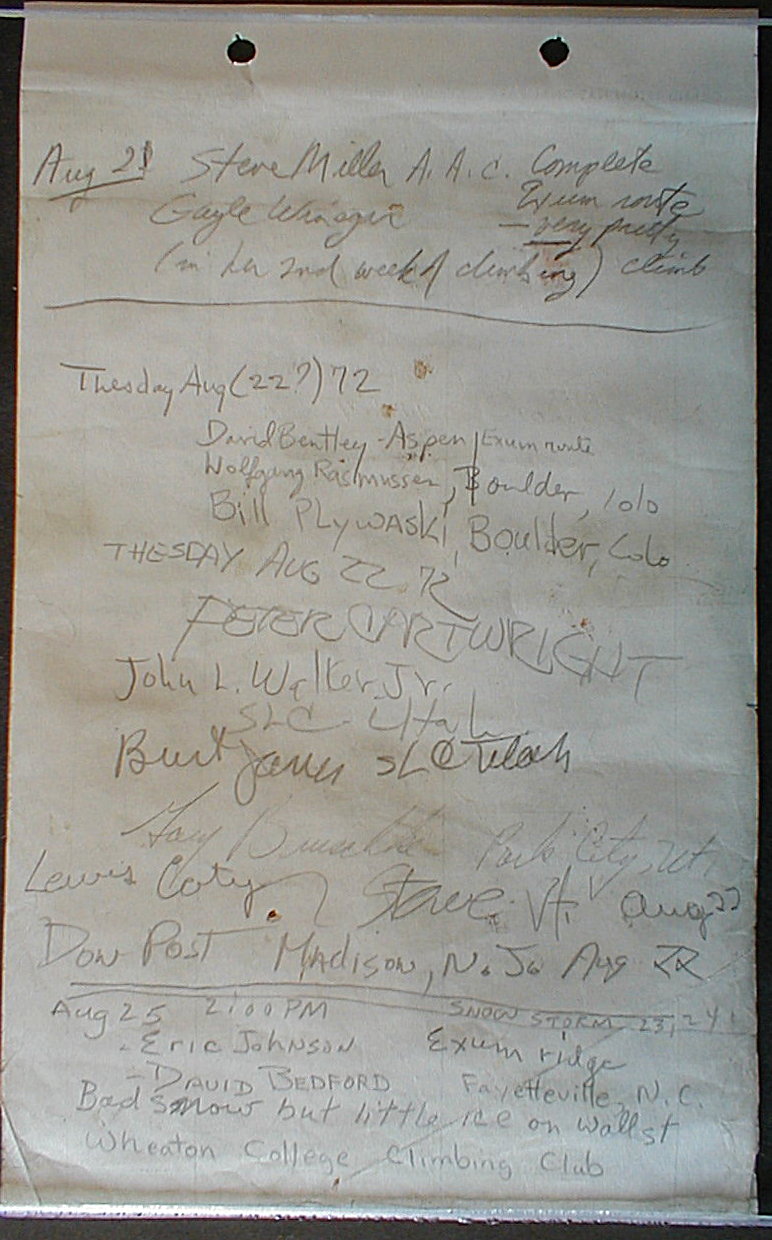 Aug 21 Steve Miller A.A.C. Complete
Exum route
Gayle
— very pretty
(in her 2nd week of climbing) climb
Thesday Aug (22?) 72
David Bentley - Aspen | Exum route
Wolfgang Rasmussen, Boulder, Colo
Bill Plywaski, Boulder, Colo
THESDAY AUG 22 72
PETER CARTWRIGHT
John L. Walker Jr.
SLC Utah
Burt Janis SLC Utah
Park City, Ut.
Lewis Coty Stowe Vt. Aug 22
Don Post Madison, N.J. Aug 22
Aug 25 2:00 PM SNOW STORM 23, 24!
- Eric Johnson Exum ridge
- David Bedford Fayetteville, N.C.
Bad snow but little ice on wall st
Wheaton College Climbing Club